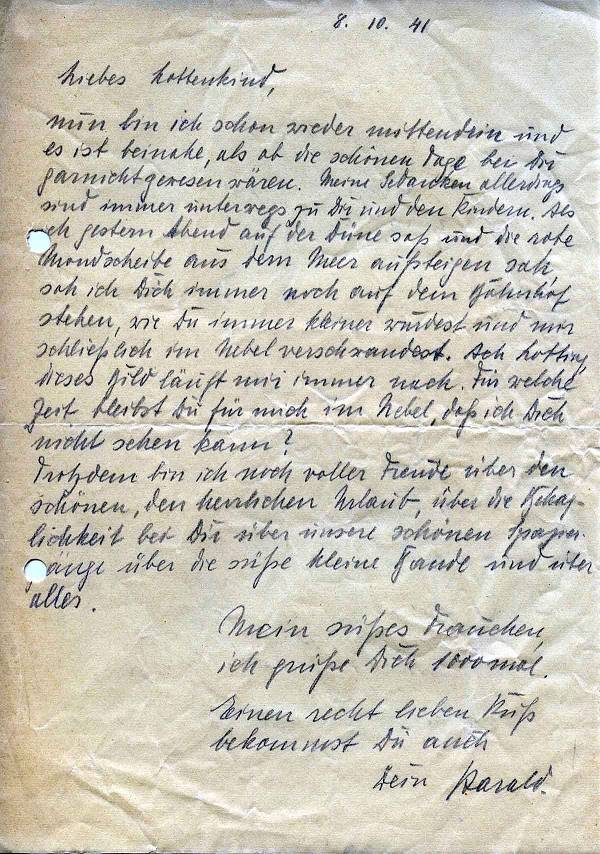 8. 10. 41
Liebes Lottenkind,
nun bin ich schon wieder mittendrin und
es ist beinahe, als ob die schönen Tage bei Dir
garnicht gewesen wären. Meine Gedanken allerdings
sind immer unterwegs zu Dir und den Kindern. Als
ich gestern Abend auf der Düne saß und die rote
Mondscheibe aus dem Meer aufsteigen sah,
sah ich Dich immer noch auf dem Bahnhof
stehen, wie Du immer kleiner wurdest und mir
schließlich im Nebel verschwandest. Ach Lotting,
dieses Bild läuft mir immer nach. Für welche
Zeit bleibst Du für mich im Nebel, daß ich Dich
nicht sehen kann?
Trotzdem bin ich noch voller Freude über den
schönen, den herrlichen Urlaub, über die Behag-
lichkeit bei Dir über unsere schönen Spazier-
gänge über die süße kleine Bande und über
alles.
Mein süßes Frauchen,
ich grüße Dich 1000mal.
Einen recht lieben Kuß
bekommst Du auch
Dein Harald.